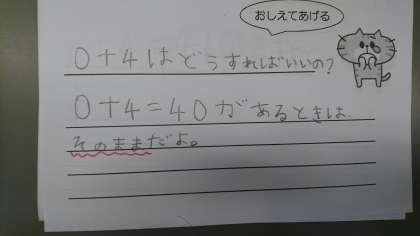 おしえてあげる
0+4はどうすればいいの?
0+4=40があるときは、
そのままだよ。